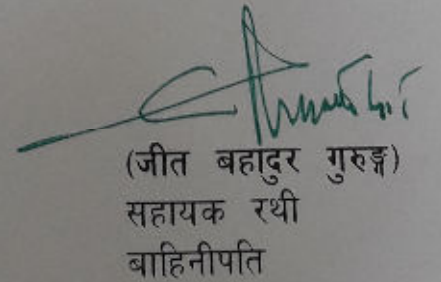 (जीत बहादुर गुरुङ्ग)
सहायक रथी
बाहिनीपति